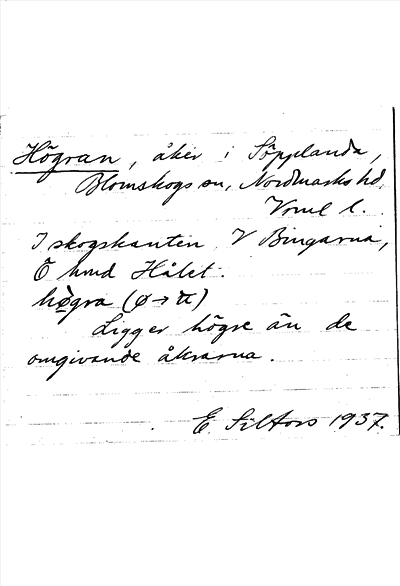 Högran, åker i Söpplanda,
Blomskogs sn, Nordmarks hd,
Vrml l.
I skogskanten. V Bingarna,
Ö hmd Hålet.
hògra (ø→
Ligger högre än de
omgivande åkrarna.
E. 1937.